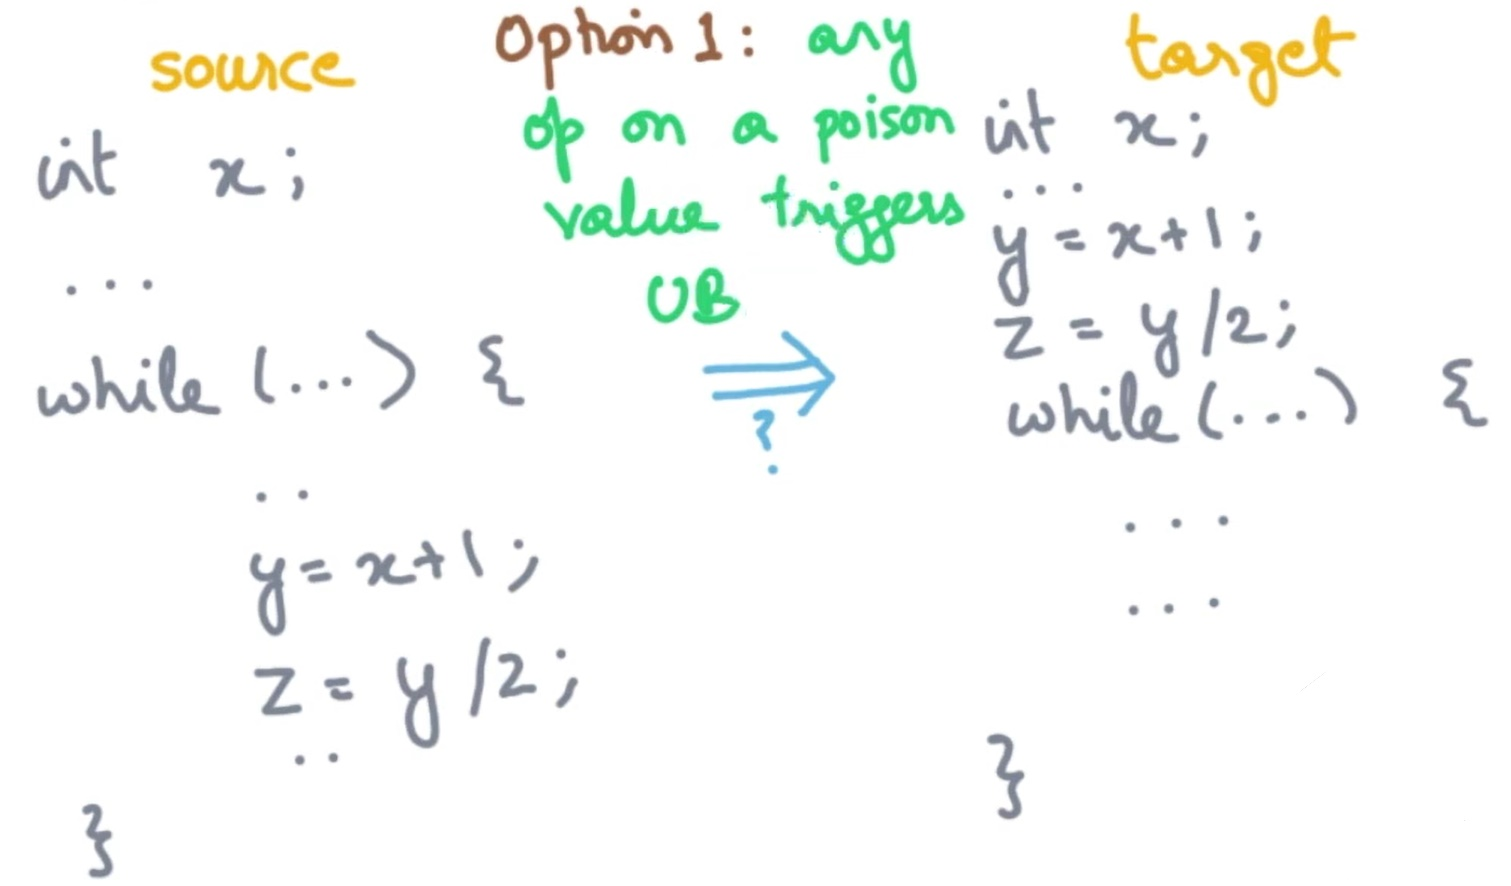 source
int x;
...
while (...) {
..
y = x+1;
z = y/2;
..
}
Option 1: any
op on a poison
value triggers
UB
?
target
int x;
...
y = x+1;
z = y/2;
while (...) {
...
...
}